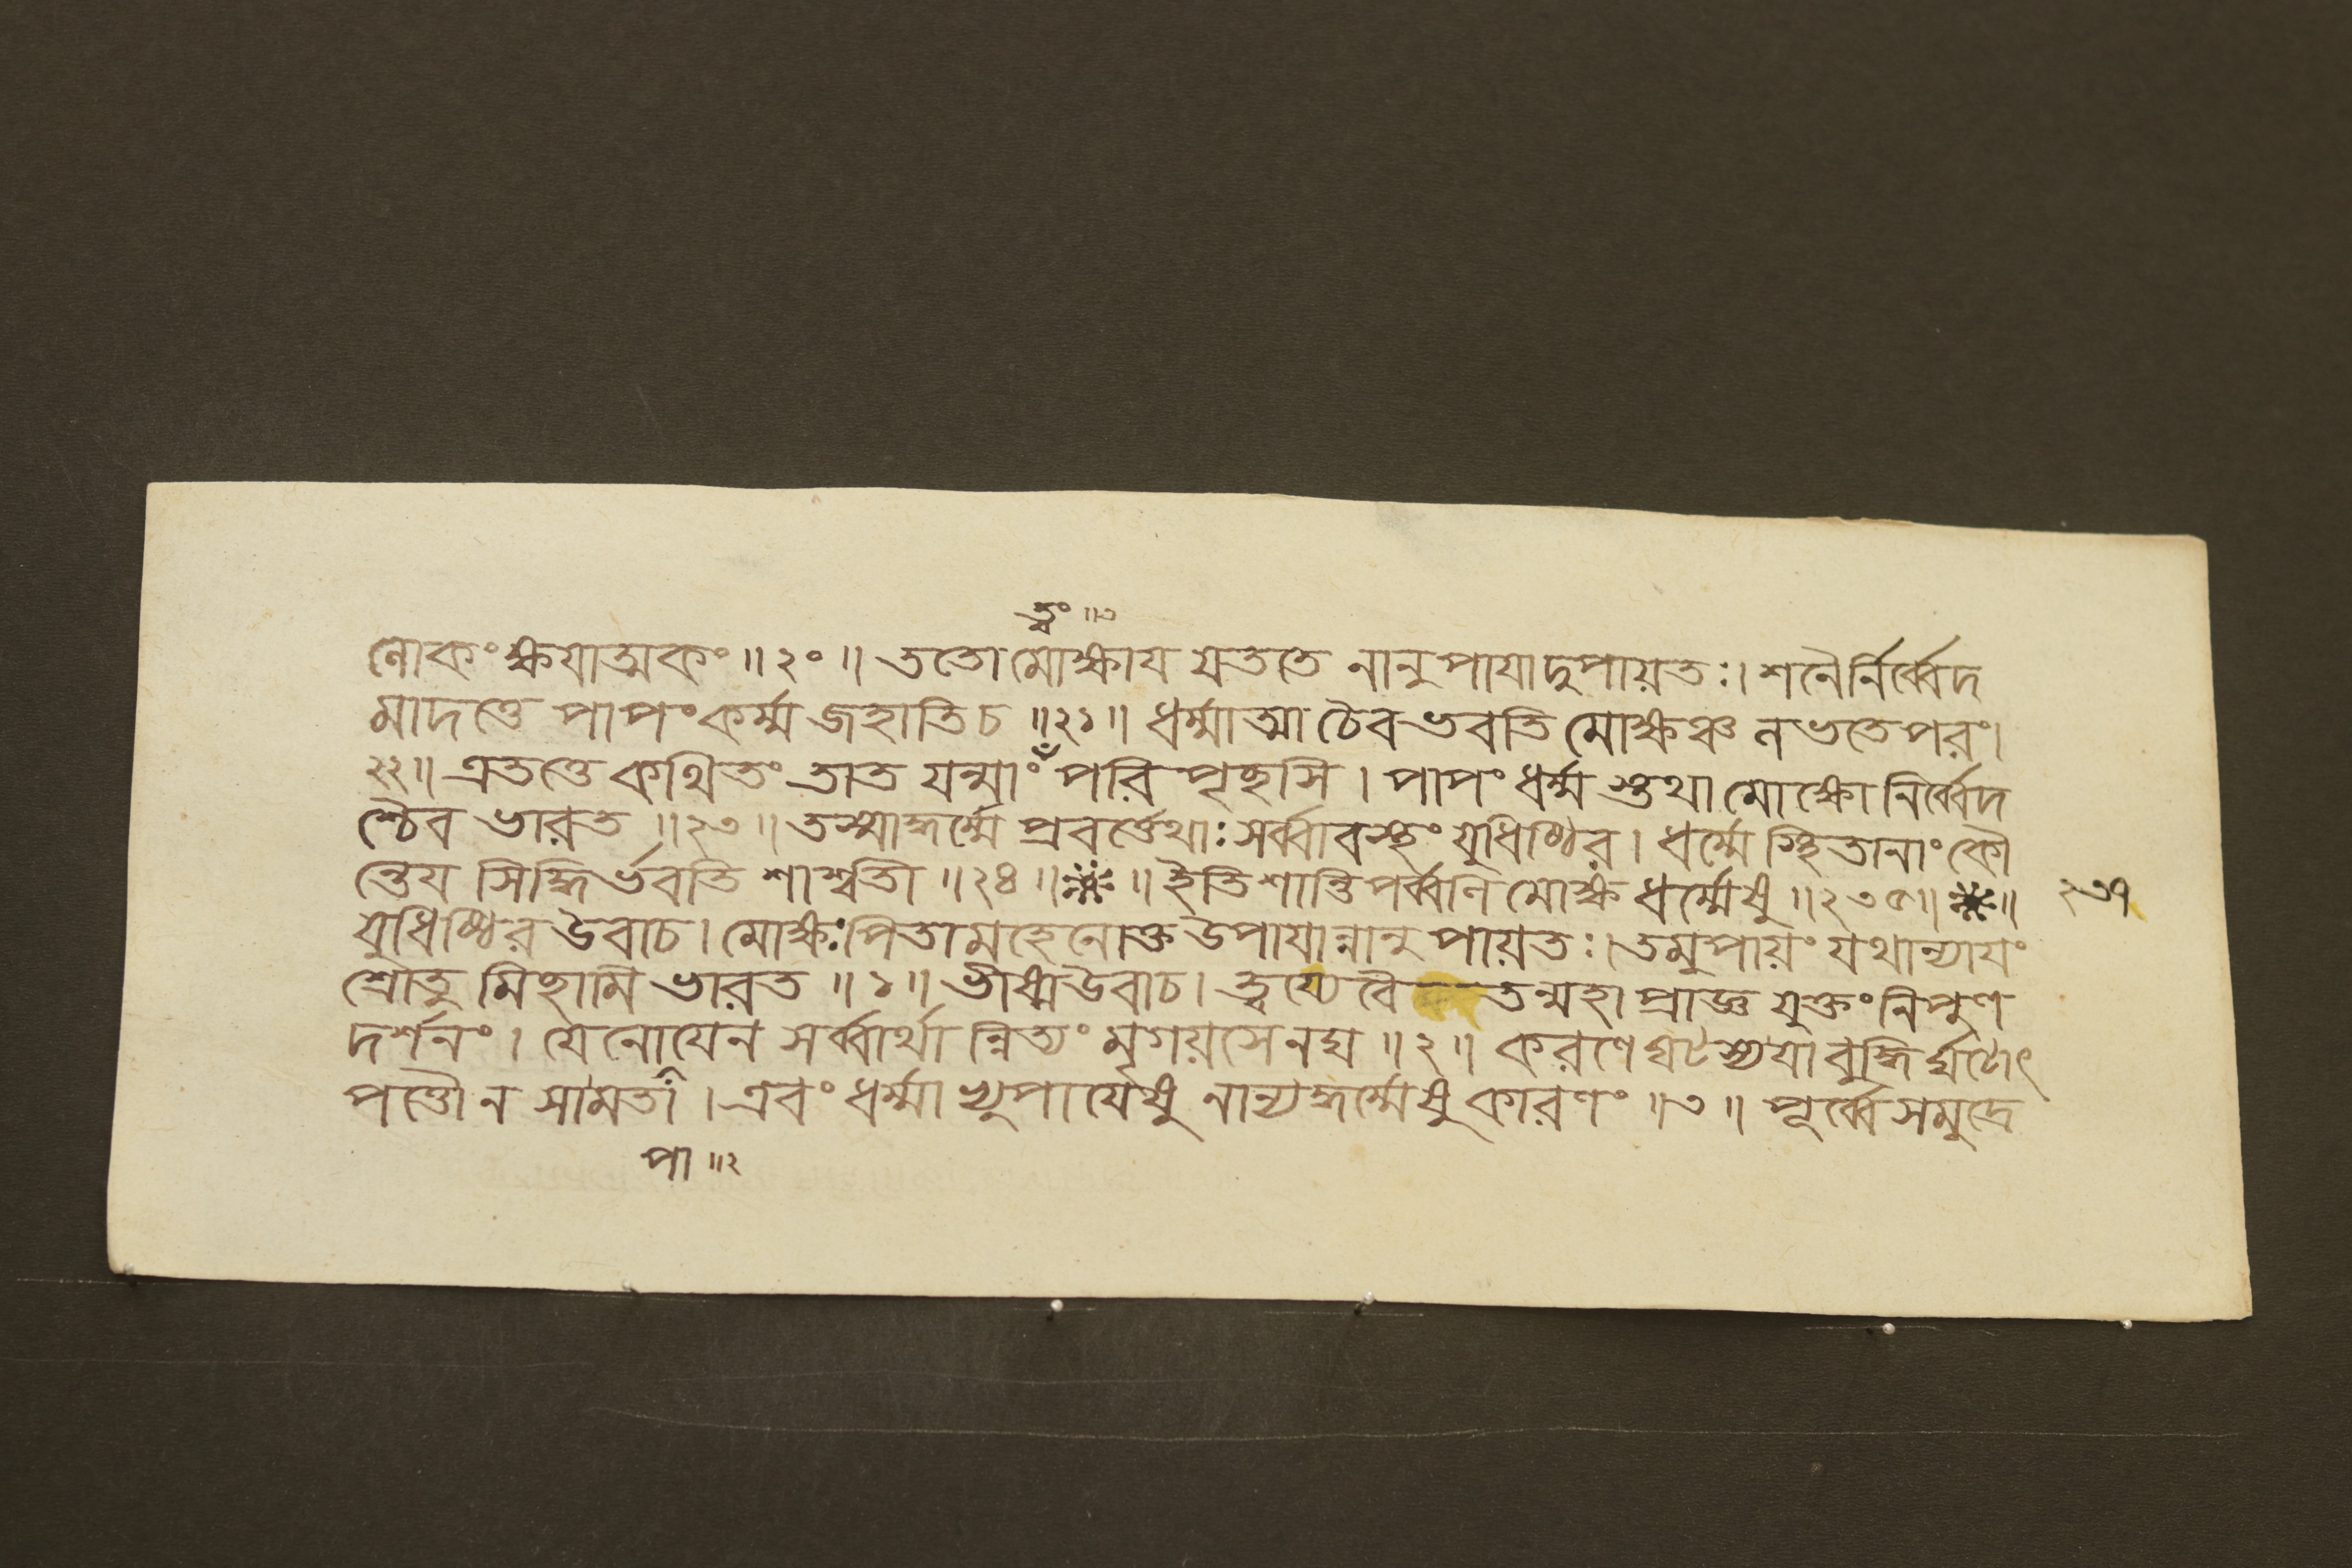 ত্বং ॥১
লোকং ক্ষয়াত্মকং ॥ ২০ ॥ ততো মোক্ষায় যততে নানুপায়াদুপায়তঃ । শনৈর্নির্ব্বেদ
মাদত্তে পাপং কর্ম্ম জহাতি চ ॥ ২১ ॥ ধর্ম্মাত্মা চৈব ভবতি মোক্ষঞ্চ লভতে পরং ।
২২ ॥ এতত্তে কথিতং তাত যন্মাং পরি পৃচ্ছসি । পাপং ধর্ম্ম স্তথা মোক্ষো নির্ব্বেদ
শ্চৈব ভারত ॥ ২৩ ॥ তস্মাদ্ধর্ম্মে প্রবর্ত্তেথাঃ সর্ব্বাবস্থং যুধিষ্ঠির । ধর্ম্মে স্থিতানাং কৌ
ন্তেয় সিদ্ধির্ভবতি শাশ্বতী ॥ ২৪ ॥ ॥ ইতি শান্তিপর্ব্বণি মোক্ষ ধর্ম্মেষু ॥ ২৩৫ ॥ ॥ ২৩৭
যুধিষ্ঠির উবাচ । মোক্ষঃ পিতামহেনোক্ত উপায়ান্নানু পায়তঃ । তমুপায়ং যথান্যায়ং
শ্রোতু মিচ্ছামি ভারত ॥ ১ ॥ ভীষ্ম উবাচ । ত্বয্যেবৈ তন্মহা প্রাজ্ঞ যুক্তং নিপুণ
দর্শনং । যেনোপেন সর্ব্বার্থা ন্নিত্যং মৃগয়সেনঘ ॥ ২ ॥ করণে ঘটস্য যা বুদ্ধি র্ঘটোৎ
পত্তৌ ন সা মতা । এবং ধর্ম্মা খ্যুপায়েষু নান্যদ্ধর্ম্মেষু কারণং ॥ ৩ ॥ পূর্ব্বে সমুদ্রে
পা ॥২